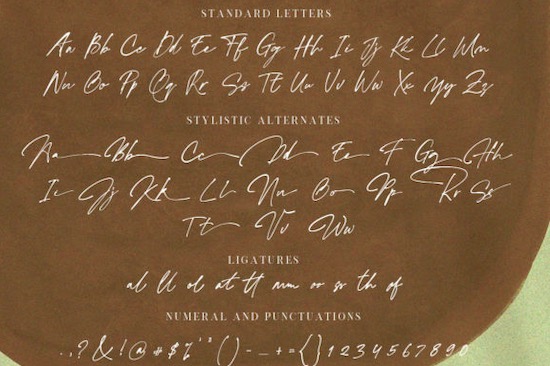 STANDARD LETTERS
Aa Bb Cc Dd Ee Ff Gg Hh Ii Jj Kk Ll Mm
Nn Oo Pp Qq Rr Ss Tt Uu Vv Ww Xx Yy Zz
STYLISTIC ALTERNATES
Aa Bb Cc Dd Ee F Gg Hh
Ii Jj Kk Ll Nn Oo Pp Rr Ss
Tt Vv Ww
LIGATURES
al ll ol at tt mm oo or th of
NUMERAL AND PUNCTUATIONS
.,?&!@#$%'"()-_+={}1234567890